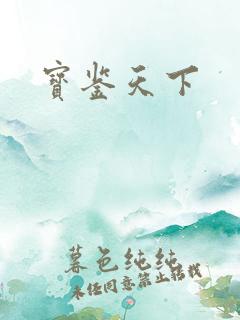 寶鉴天下
暮色纯纯
未经同意禁止转载